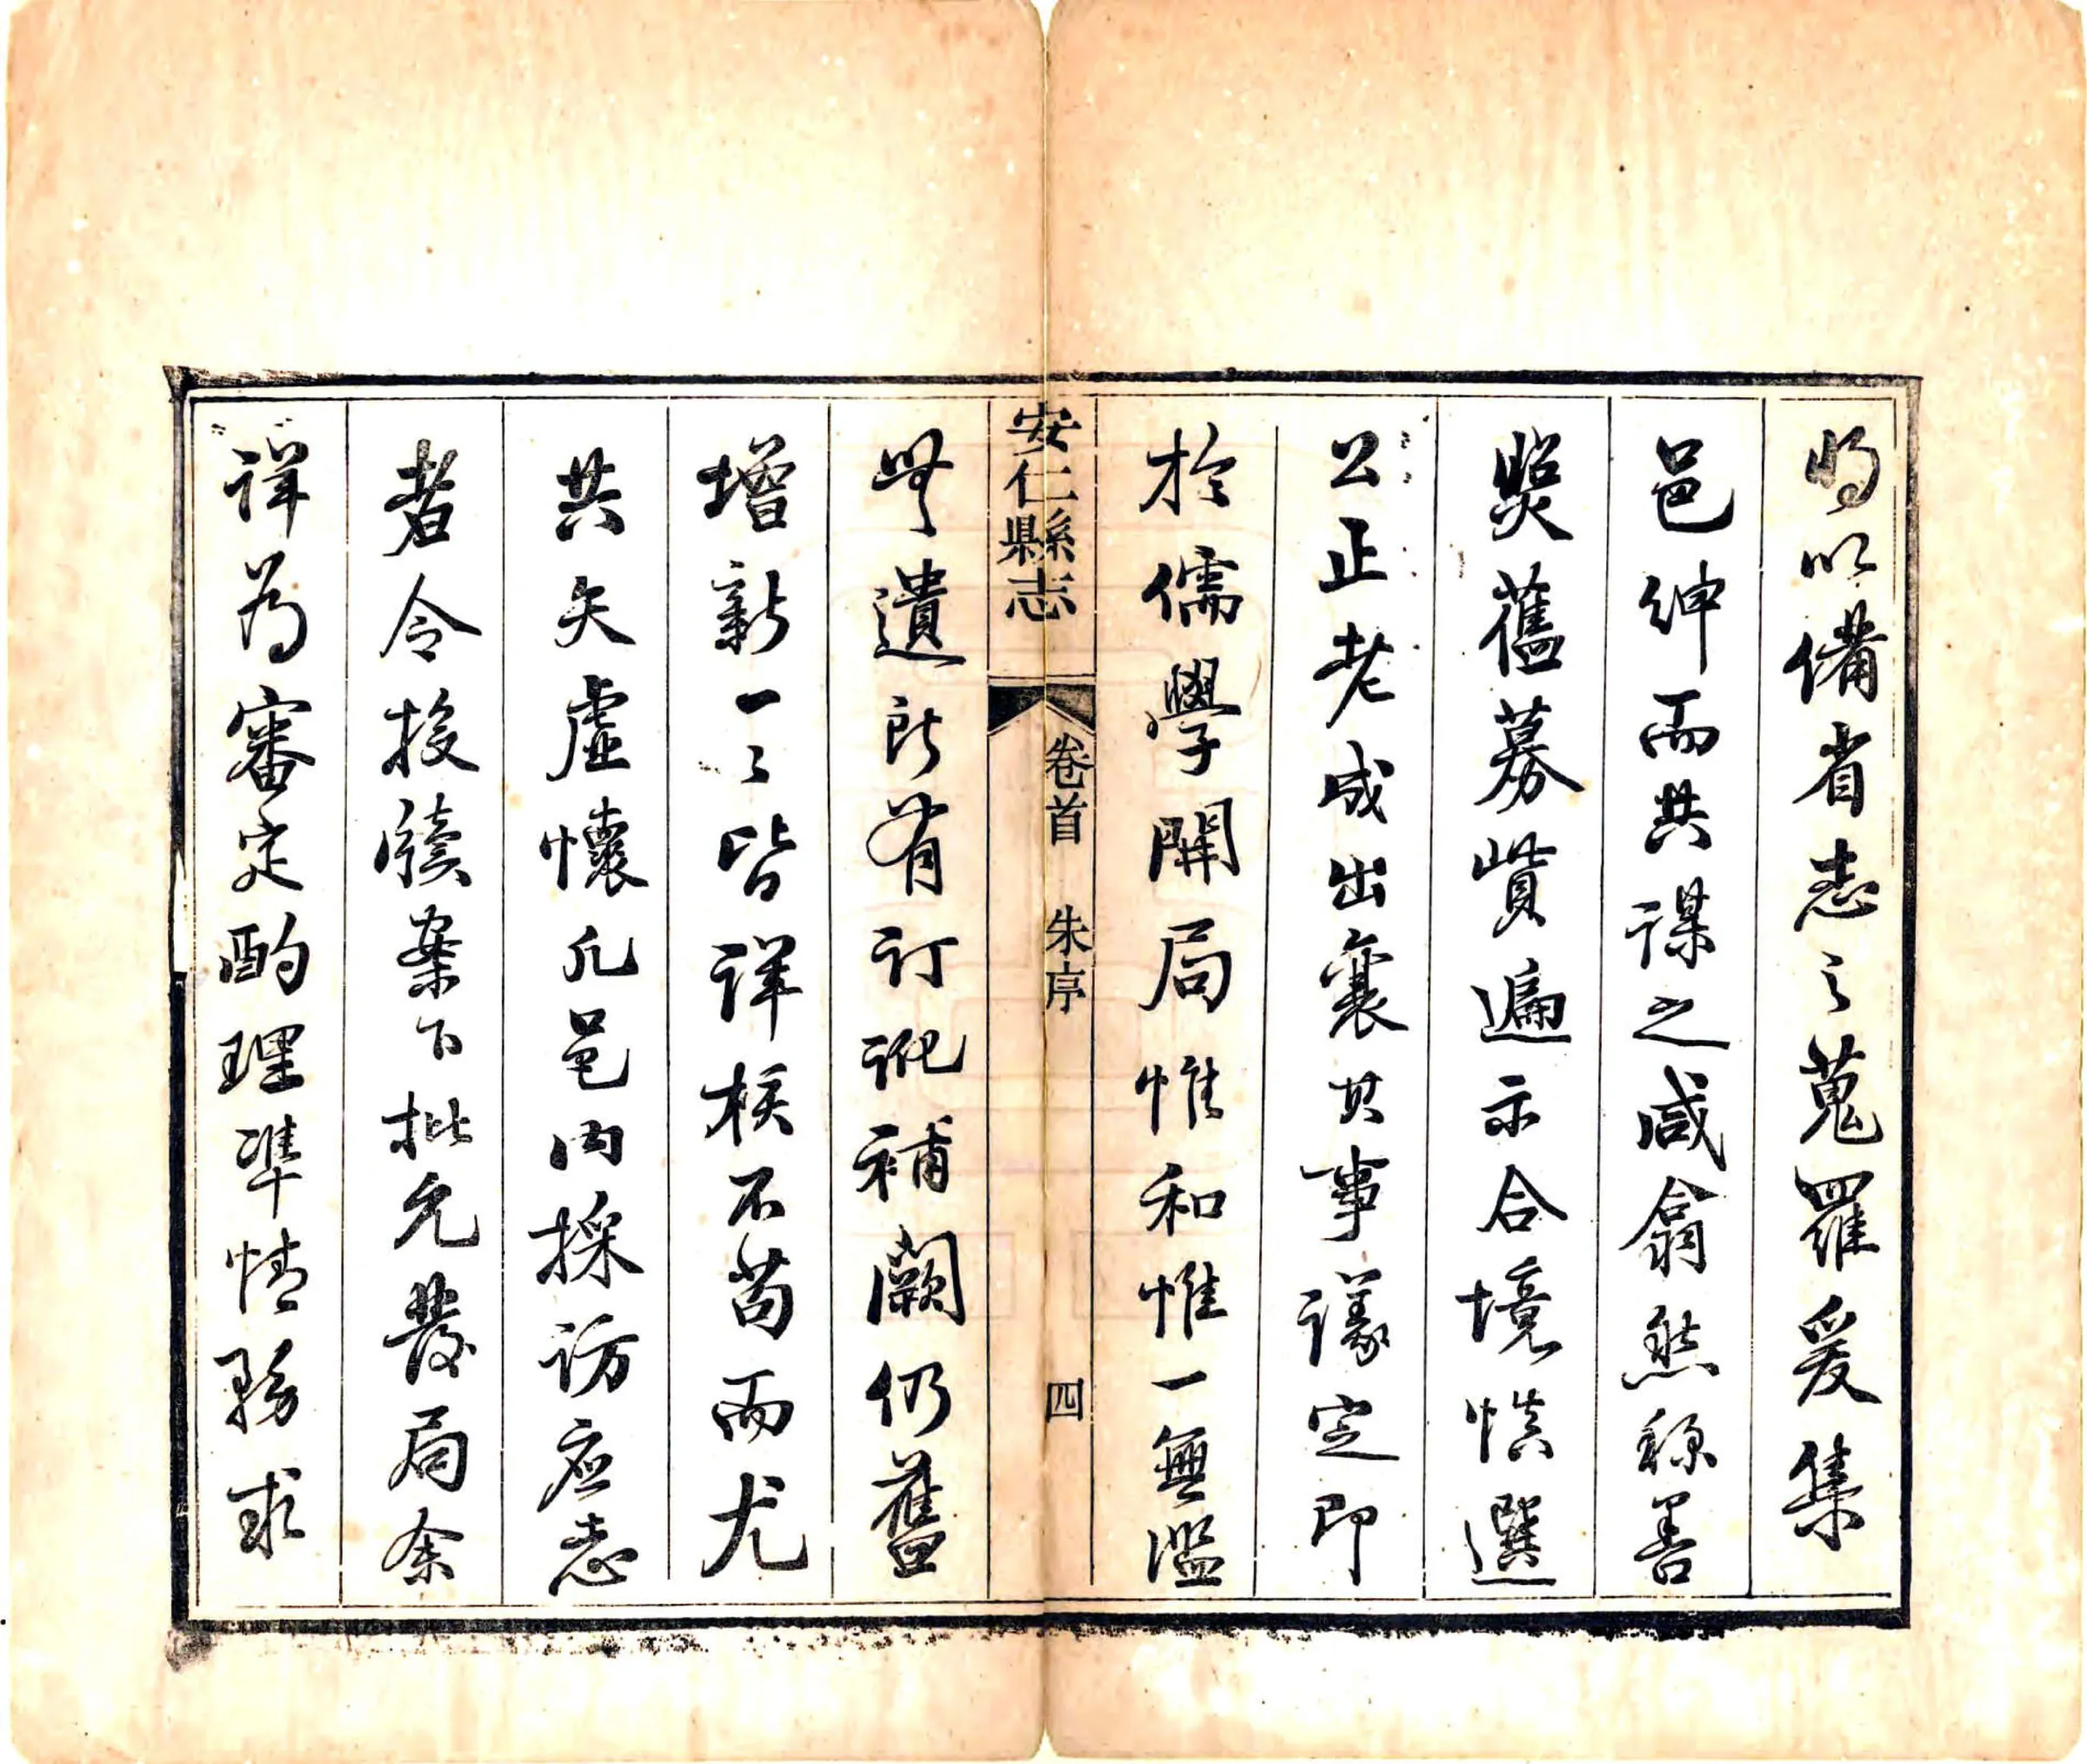 將以備省志之蒐羅爰集
邑紳而共謀之咸翕然稱善
爕舊募貲遍示合境慎選
公正老成出襄其事議定即
於儒學開局惟和惟一無濫
安仁縣志
卷首
朱序
四
無遺所有訂訛補闕仍舊
增新一々皆詳核不苟而尤
共矢虛懷凡邑內採訪應志
者令投牘案下批允發局余
詳為審定酌理準情務求